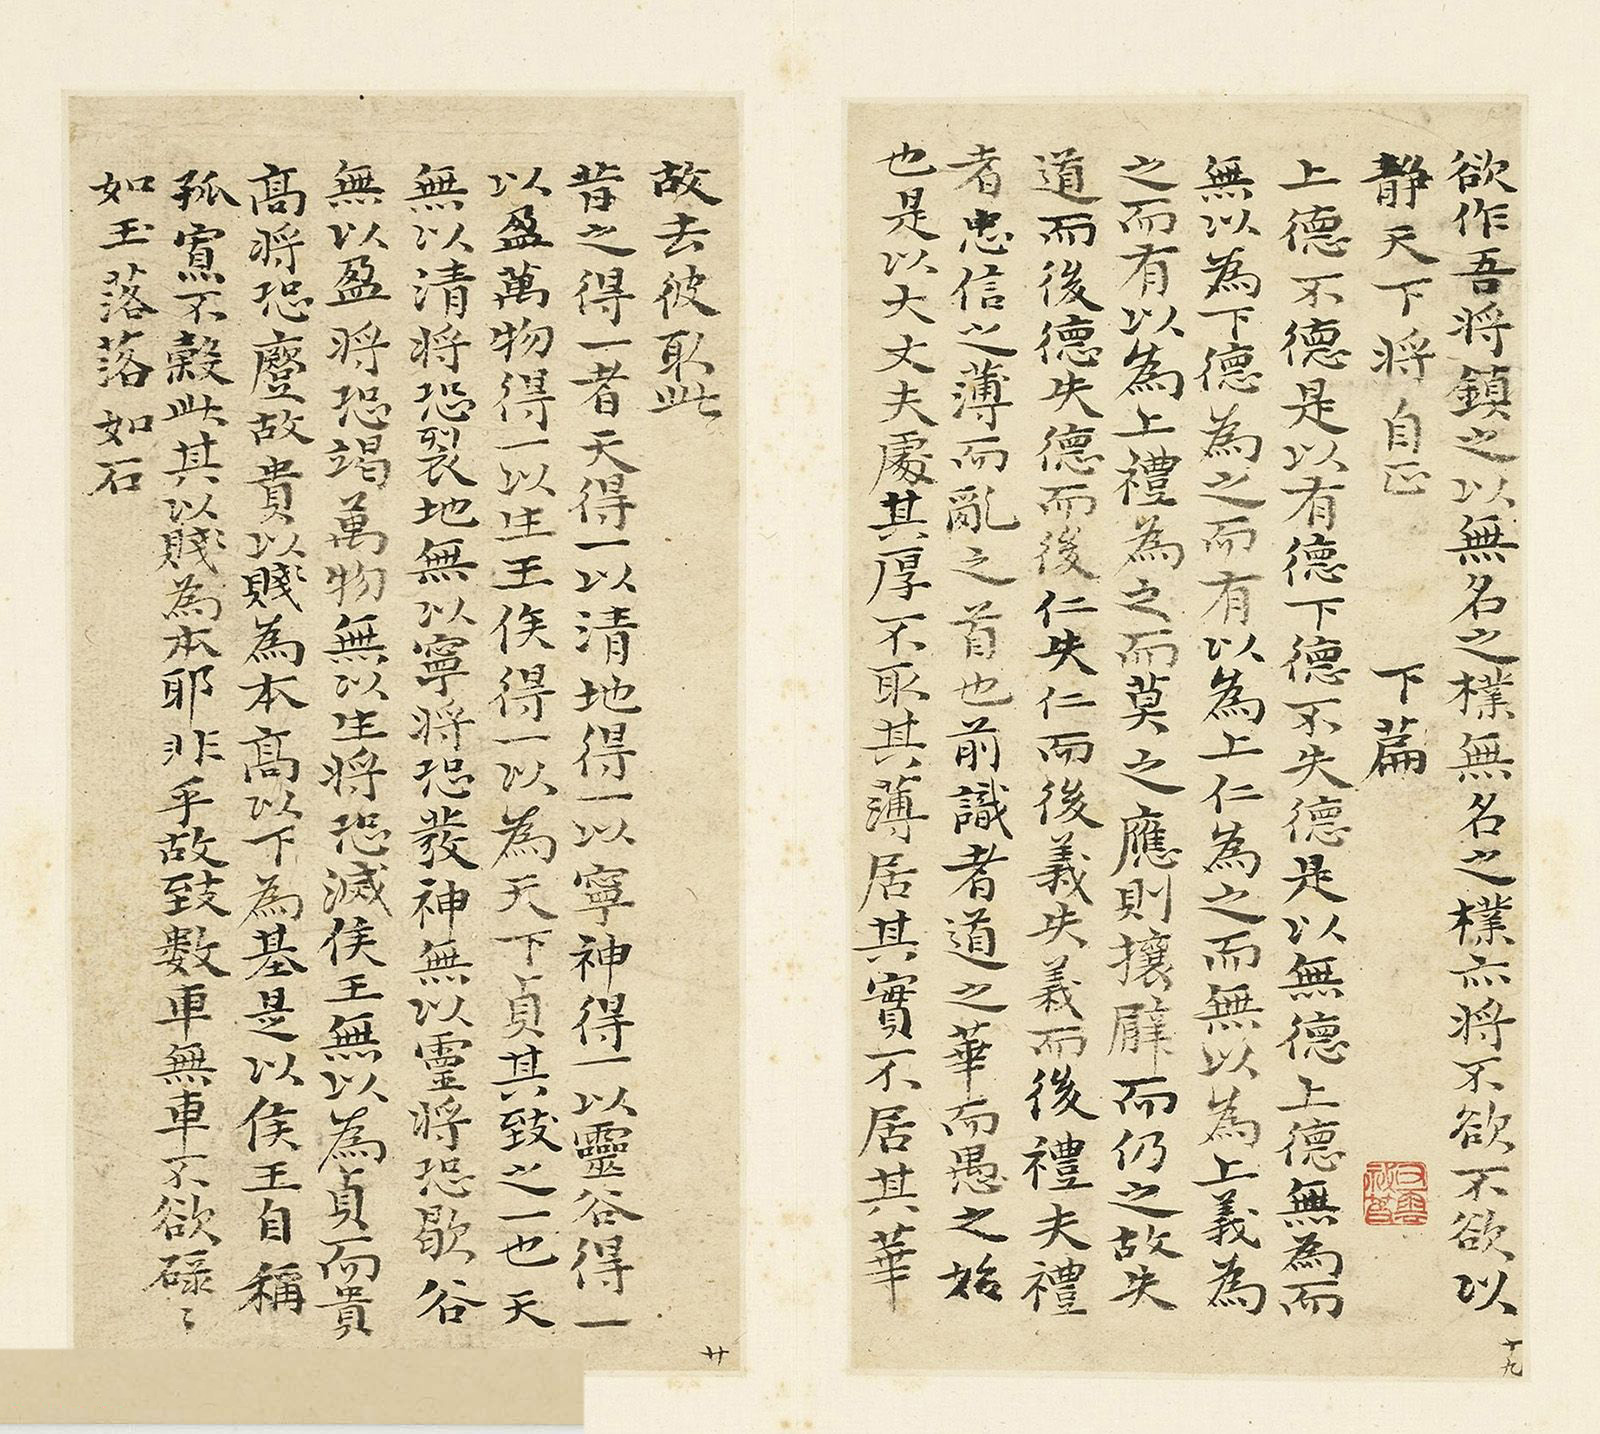 欲作吾将鎮之以無名之樸無名之樸亦将不欲不欲以
静天下将自正　下篇
上德不德是以有德下德不失德是以無德上德無為而
無以為下德為之而有以為上仁為之而無以為上義為
之而有以為上禮為之而莫之應則攘臂而仍之故失
道而後德失德而後仁失仁而後義失義而後禮夫禮
者忠信之薄而亂之首也前識者道之華而愚之始
也是以大丈夫處其厚不取其薄居其實不居其華
十九
故去彼取此
昔之得一者天得一以清地得一以寧神得一以靈谷得一
以盈萬物得一以生王侯得一以為天下貞其致之一也天
無以清将恐裂地無以寧将恐發神無以靈将恐歇谷
無以盈将恐竭萬物無以生将恐滅侯王無以為貞而貴
高将恐蹷故貴以賤為本高以下為基是以侯王自稱
孤寡不穀此其以賤為本耶非乎故致數車無車不欲碌〻
如玉落落如石
廿